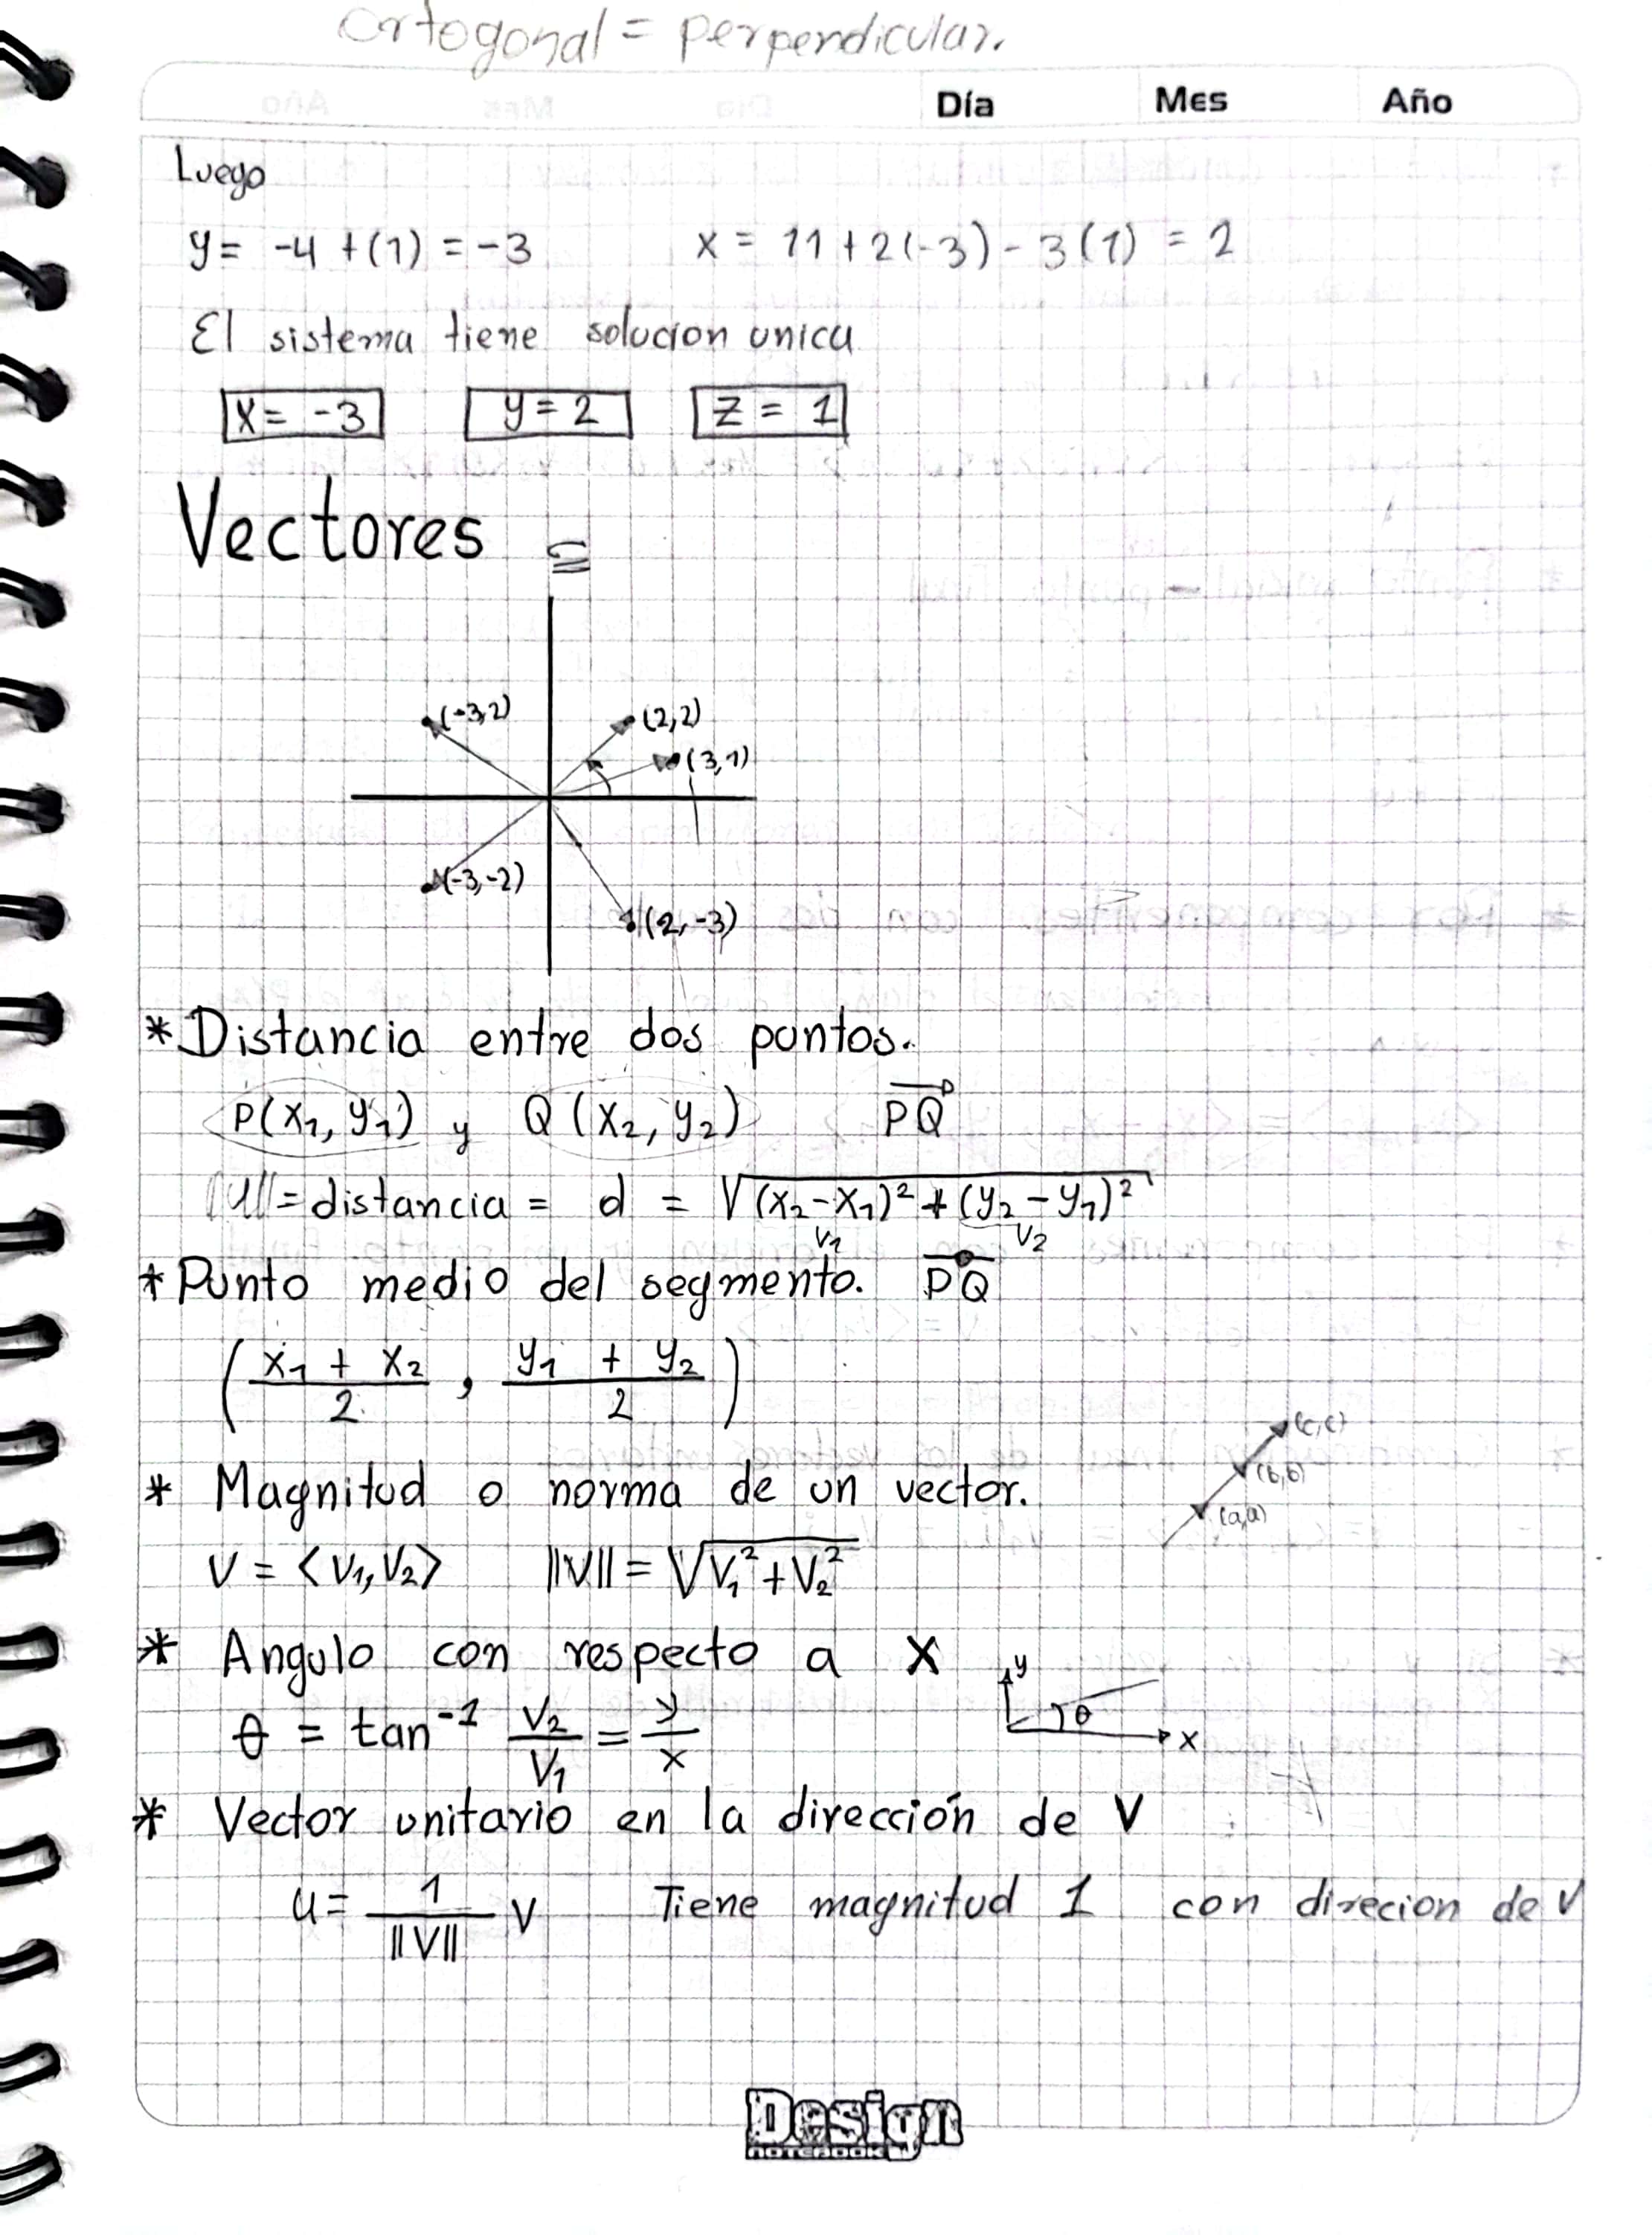 Ortogonal = perpendicular.
Día Mes Año
Luego
y = -4 + (1) = -3 x = 11 + 2(-3) - 3(1) = 2
El sistema tiene solucion unica
x = -3 y = 2 z = 1
Vectores
(-3,2) (2,2)
(3,1)
(-3,-2)
(2,-3)
* Distancia entre dos puntos.
P(x₁, y₁) y Q(x₂, y₂) PQ
||u|| = distancia = d = √(x₂-x₁)² + (y₂-y₁)²
v₁ v₂
* Punto medio del segmento. PQ
(x₁ + x₂ / 2 , y₁ + y₂ / 2)
(c,c)
(b,b)
(a,a)
* Magnitud o norma de un vector.
V = <V₁, V₂> ||V|| = √V₁² + V₂²
* Angulo con respecto a X
y
θ
x
θ = tan⁻¹ V₂/V₁ = y/x
* Vector unitario en la dirección de V
u = 1/||V|| V Tiene magnitud 1 con direcion de V
Design
NOTEBOOK